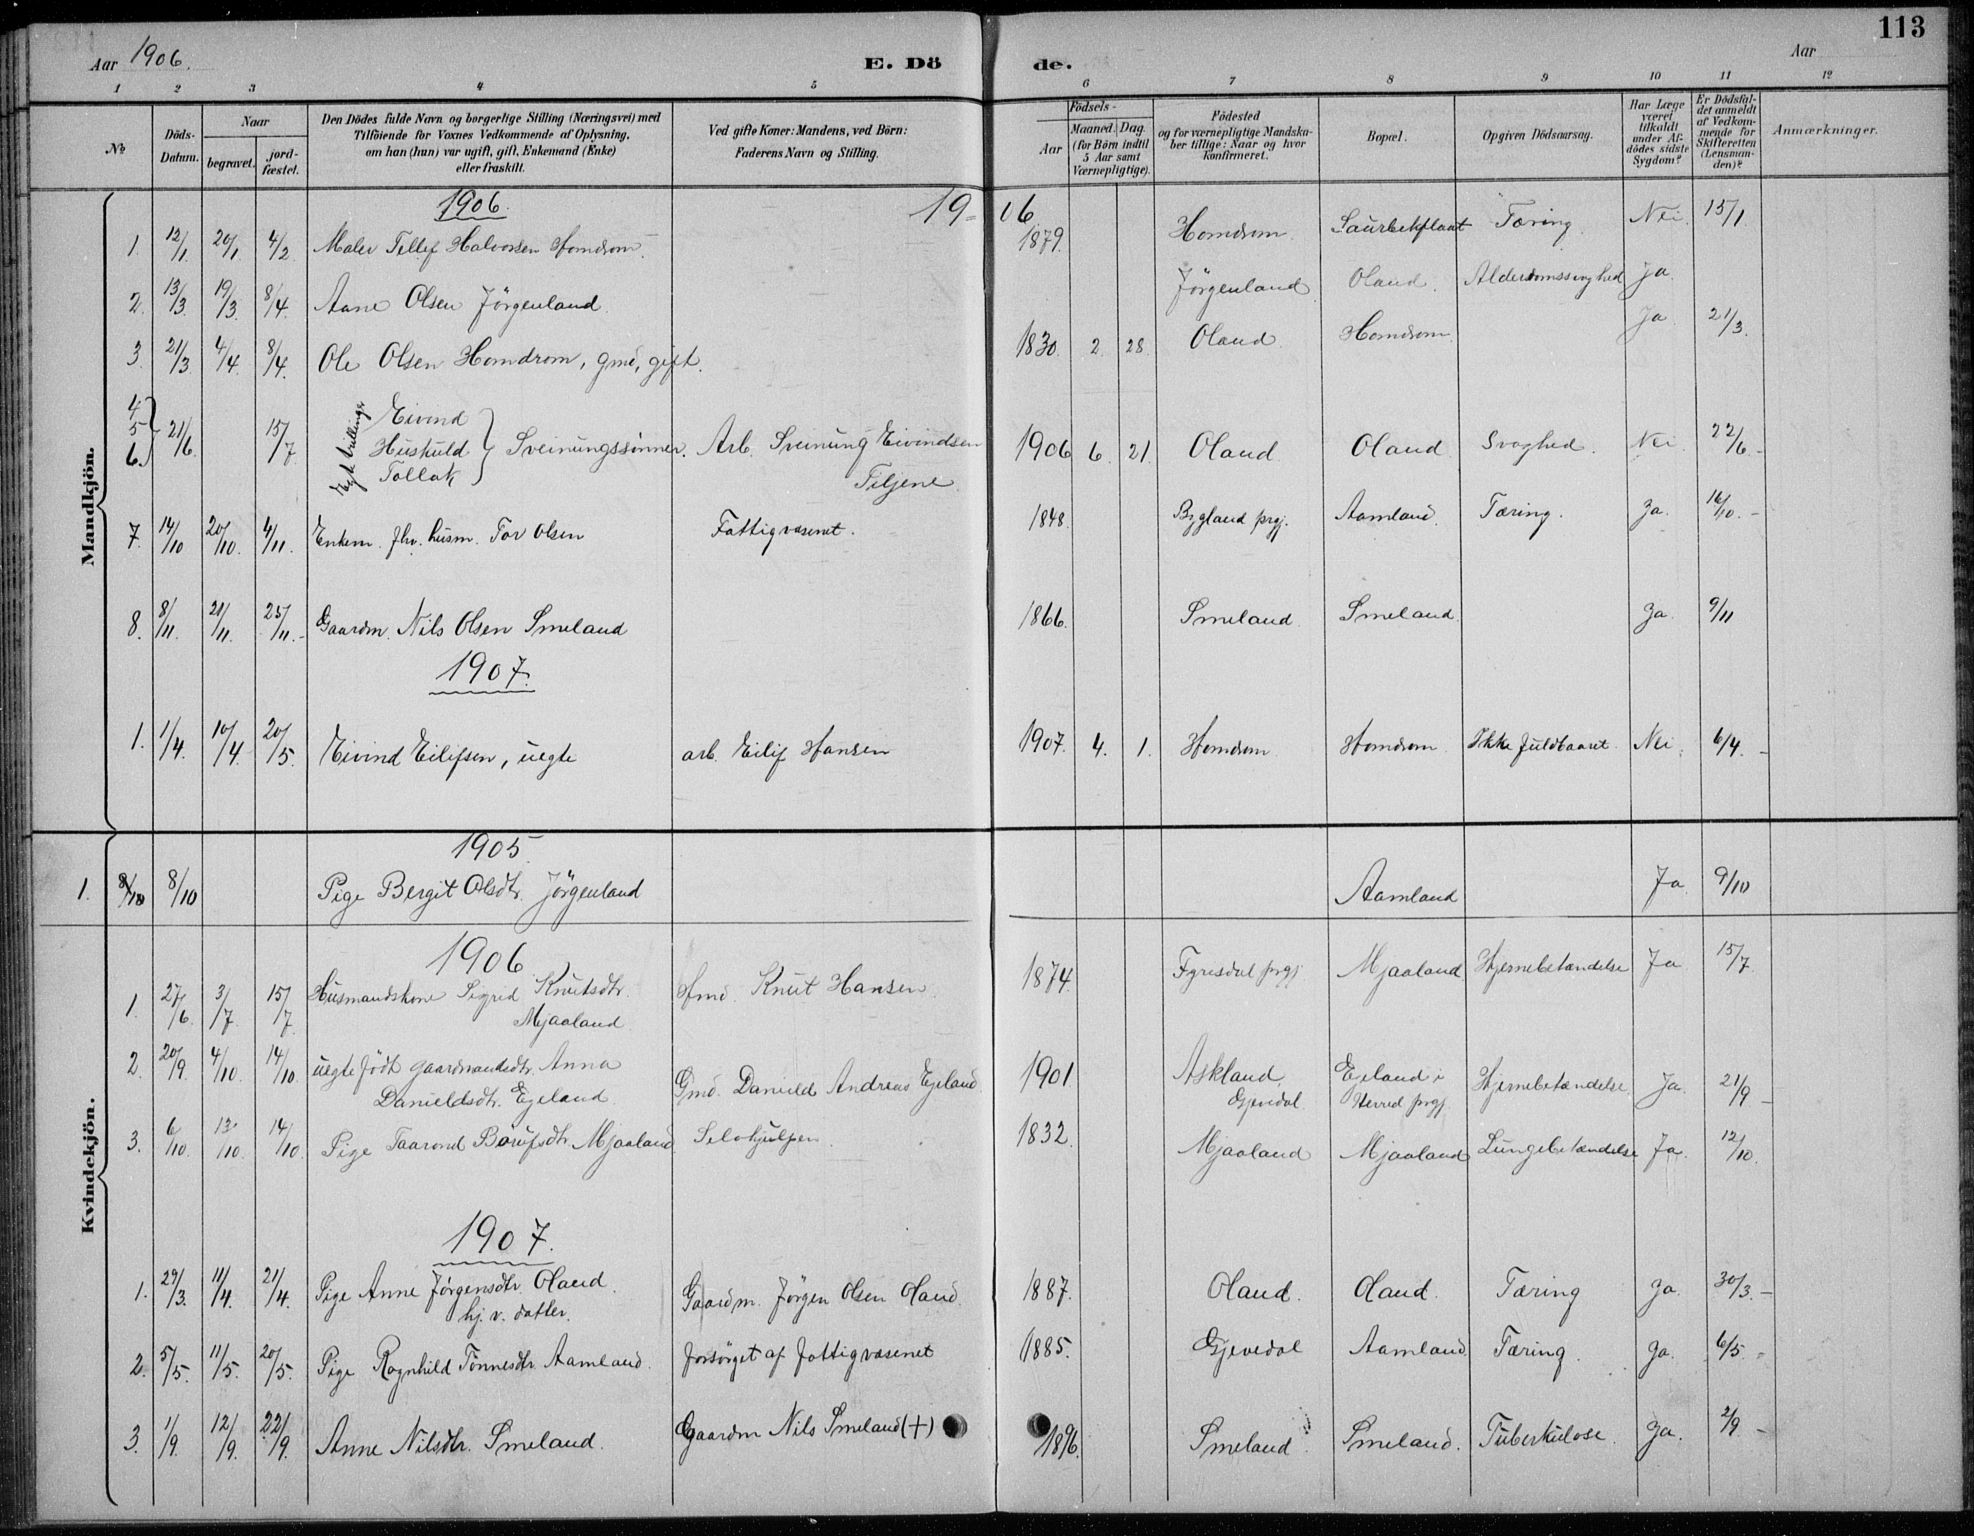 113
Aar 1906.
E. Dö
de.
Aar
1 2 3 4 5 6 7 8 9 10 11 12
No
Döds-Datum.
Naar
begravet.
jord-fæstet.
Den Dödes fulde Navn og borgerlige Stilling (Næringsvei) med
Tilföiende for Voxnes Vedkommende af Oplysning,
om han (hun) var ugift, gift, Enkemand (Enke)
eller fraskilt.
Ved gifte Koner: Mandens, ved Börn:
Faderens Navn og Stilling.
Födsels-
Aar
Maaned. Dag.
(for Börn indtil
5 Aar samt
Værnepligtige).
Födested
og for værnepligtige Mandska-
ber tillige: Naar og hvor
konfirmeret.
Bopæl.
Opgiven Dödsaarsag.
Har Læge
været
tilkaldt
under Af-
dödes sidste
Sygdom?
Er Dödsfal-
det anmeldt
af Vedkom-
mende for
Skifteretten
(Lensman-
den)?
Anmærkninger.
Mandkjön.
1906. 19-06.
1. 12/1 20/1 4/2 Maler Tellef Halvorsen Homdrom. 1879. Homdrom. Saurbekplaat Tæring. Nei 15/1
2. 13/3 19/3. 8/4. Aane Olsen Jörgenland. Jörgenland Oland. Alderdomssvaghed Ja.
3. 21/3 4/4. 8/4. Ole Olsen Homdrom, gmd, gift. 1830. 2. 28. Oland Homdrom. Ja 21/3.
4 5 6. 21/6 15/7 Egte trillinger Eivind
Huskuld Sveinungssønner. Arb. Sveinung Eivindsen 1906 6. 21. Oland Oland Svaghed. Nei. 22/6.-
Tallak Tiljene.
7. 14/10 20/10. 4/11. Enkem. fhv. husm. Tor Olsen Fattigvæsenet. 1848. Bygland prgj. Aamland. Tæring. Ja. 16/10.-
8. 8/11. 21/11. 25/11.- Gaardm. Nils Olsen Smeland 1866. Smeland. Smeland. Ja. 9/11
1907.
1. 1/4. 10/4. 20/5. Eivind Eilefsen, uegte arb. Eilif Hansen 1907. 4. 1. Homdrom Homdrom. Ikke fuldbaaret. Nei. 6/4.-
Kvindekjön.
1905
1. 8/10 8/10 Pige Bergit Olsdtr. Jörgenland Aamland Ja. 9/10
1906
1. 27/6. 3/7. 15/7. Husmandskone Sigrid Knutsdtr. Hmd. Knut Hansen. 1874. Fyresdal prgj. Mjaaland Hjernebetændelse Ja 15/7
Mjaaland.
2. 20/9. 4/10. 14/10 uegte födt gaardmandsdtr. Anna Gmd. Danield Andreas Egeland. 1901 Askland, Egeland i Hjernebetændelse. Ja. 21/9-
Danieldsdtr. Egeland. Gjevedal. Herred prgj.
3. 6/10. 13/10. 14/10. Pige Taarond Borufsdtr. Mjaaland Selvhjulpen. 1832. Mjaaland Mjaaland Lungebetændelse Ja. 12/10.
1907.
1. 29/3. 11/4. 21/4. Pige Anne Jörgensdtr. Oland. Gaardm. Jörgen Olsen Oland. 1887. Oland. Oland. Tæring Ja. 30/3.-
hj. v. datter.
2. 5/5. 11/5. 20/5. Pige Ragnhild Tönnesdtr. Aamland. forsörget af fattigvæsenet 1885. Gjevedal Aamland. Tæring. Ja. 6/5-
3. 1/9. 12/9. 22/9. Anne Nilsdtr. Smeland. Gaardm Nils Smeland (+) 1896. Smeland. Smeland. Tuberkulose. Ja. 2/9-